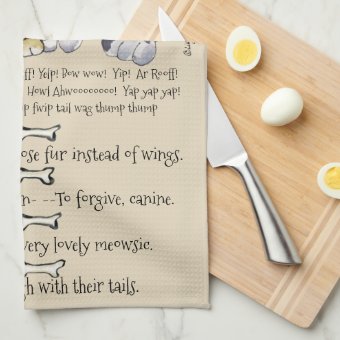 ff! Yelp! Bow wow! Yip! Ar Rooff!
Howl Ahwoooooooo! Yap yap yap!
fwip tail wag thump thump
ose fur instead of wings.
n- --To forgive, canine.
very lovely meowsic.
gh with their tails.